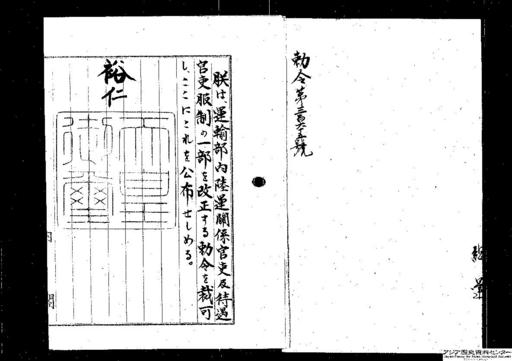 勅令第三百六十五號
朕は、運輸部内陸運關係官吏及待遇
官吏服制の一部を改正する勅令を裁可
し、ここにこれを公布せしめる。
裕仁
天皇
御璽
内
閣
アジア歴史資料センター